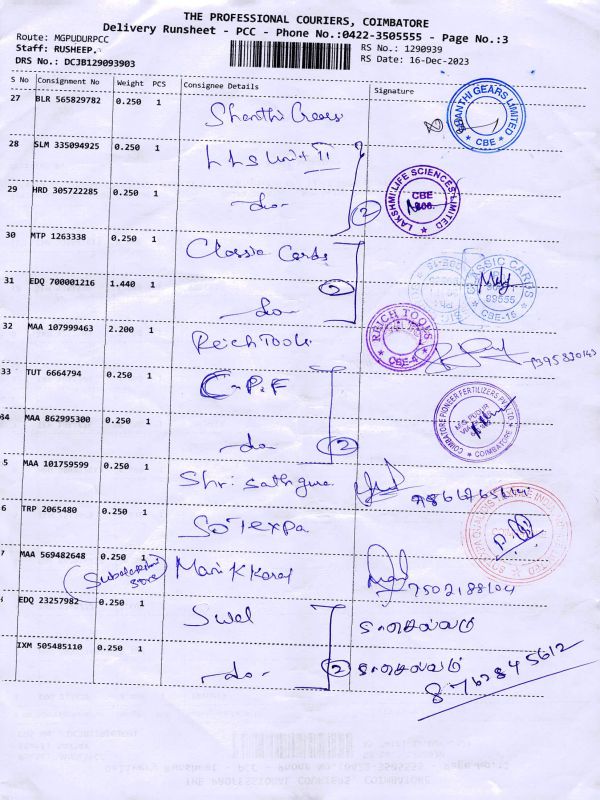 THE PROFESSIONAL COURIERS, COIMBATORE
Delivery Runsheet - PCC - Phone No.:0422-3505555 - Page No.:3
Route: MGPUDURPCC
Staff: RUSHEEP.
DRS No.: DCJB129093903
RS No.: 1290939
RS Date: 16-Dec-2023
S No Consignment No Weight PCS Consignee Details Signature
27 BLR 565829782 0.250 1 Shanthi Gears
SHANTHI GEARS LIMITED
CBE
28 SLM 335094925 0.250 1 LLS Unit II
29 HRD 305722285 0.250 1 -do- 2
LAKSHMI LIFE SCIENCES LIMITED
CBE
30 MTP 1263338 0.250 1 Classic Cards
31 EDQ 700001216 1.440 1 -do- 2
CLASSIC CARDS
99555
CBE-15
32 MAA 107999463 2.200 1 Reich Tools
REICH TOOLS
33 TUT 6664794 0.250 1 C.P.F
34 MAA 862995300 0.250 1 -do- 2
COIMBATORE PIONEER FERTILIZERS PVT LTD
COIMBATORE
5 MAA 101759599 0.250 1 Shri Sathguru
6 TRP 2065480 0.250 1
7 MAA 569482648 0.250 1
7502188104
EDQ 23257982 0.250 1 Swel
IXM 505485110 0.250 1 -do- 2
8762845612